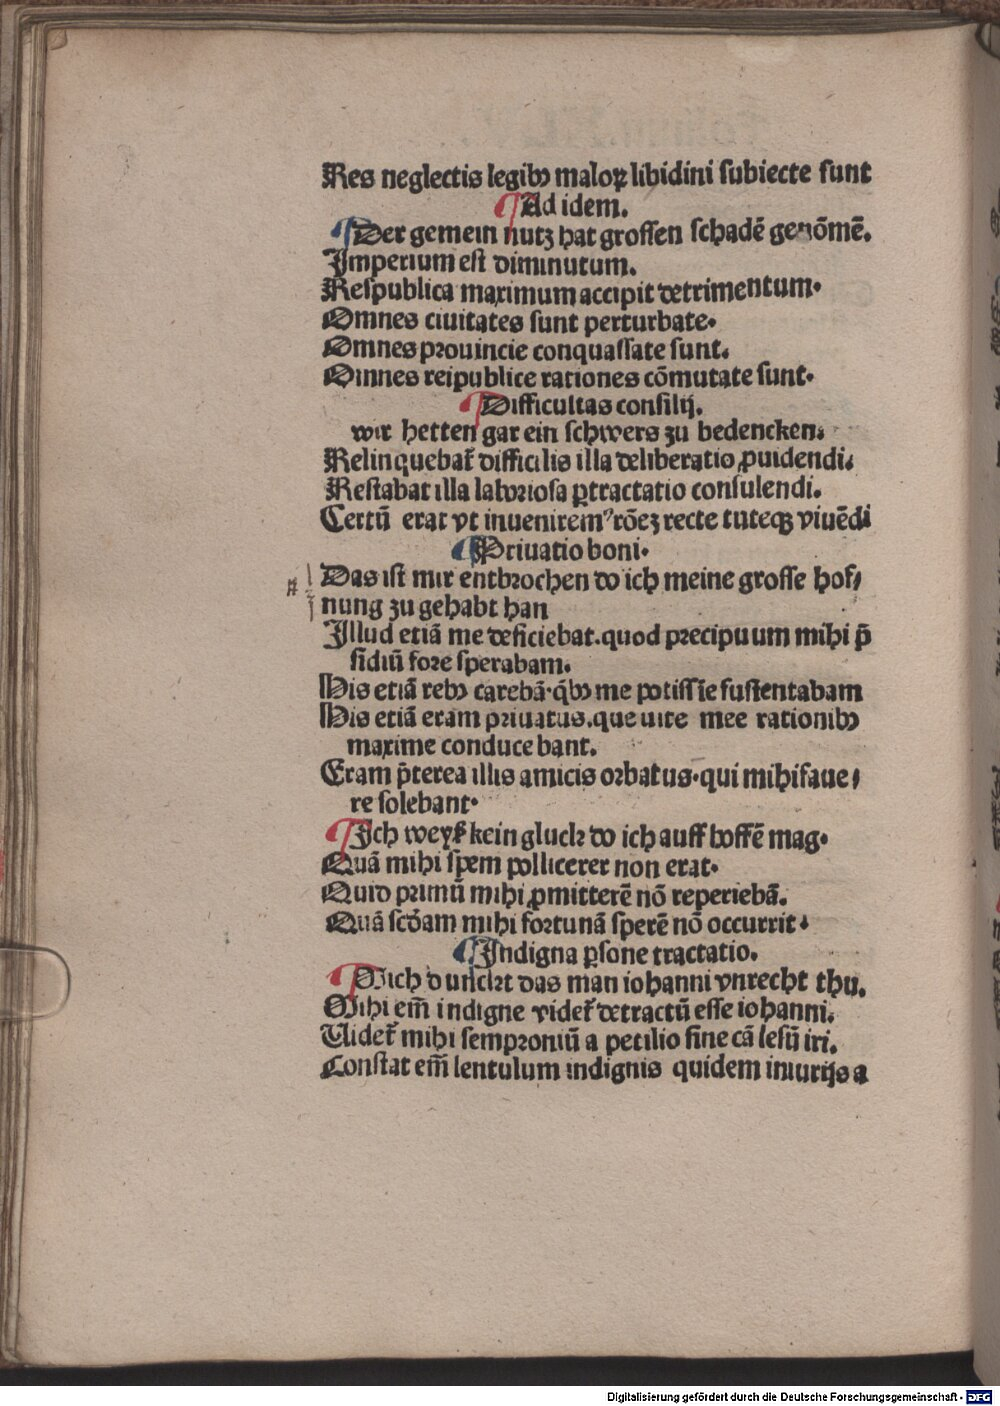 Res neglectis legibꝰ maloꝝ libidini subiecte sunt
Ad idem.
Der gemein nutz hat grossen schadē genōmē.
Imperium est diminutum.
Respublica maximum accipit detrimentum.
Omnes ciuitates sunt perturbate.
Omnes prouincie conquassate sunt.
Omnes reipublice rationes cōmutate sunt.
Difficultas consilij.
wir hetten gar ein schwers zu bedencken.
Relinquebat̃ difficilis illa deliberatio ꝓuidendi.
Restabat illa laboriosa ꝑtractatio consulendi.
Certū erat vt inueniremꝰ rōeꝫ recte tuteqꝫ viuēdi
Priuatio boni.
Das ist mir entbrochen do ich meine grosse hof⸗
nung zu gehabt han
Illud etiā me deficiebat. quod precipuum mihi p̄
sidiū fore sperabam.
His etiā rebꝰ carebā. q̄bꝰ me potissīe sustentabam
His etiā eram priuatus. que uite mee rationibꝰ
maxime conducebant.
Eram p̄terea illis amicis orbatus. qui mihi faue⸗
re solebant.
Ich weyß kein gluck do ich auff hoffē mag.
Quā mihi spem pollicerer non erat.
Quid primū mihi ꝓmitterē nō reperiebā.
Quā scd̄am mihi fortunā sperē nō occurrit.
Indigna ꝑsone tractatio.
Mich dunckt das man iohanni vnrecht thu.
Mihi em̄ indigne videt̃ detractū esse iohanni.
Uidet̃ mihi semproniū a petilio sine cā lesū iri.
Constat em̄ lentulum indignis quidem iniurijs a
Digitalisierung gefördert durch die Deutsche Forschungsgemeinschaft - DFG